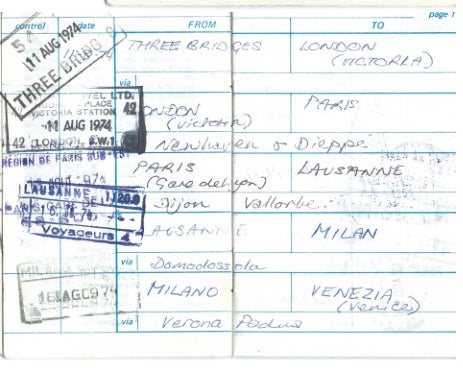 page 1
control date FROM TO
54
11 AUG 1974
THREE BRIDGES
THREE BRIDGES LONDON
(VICTORIA)
via
PLACE
VICTORIA STATION 42
11 AUG 1974
42 LONDON, S.W.1
LONDON PARIS
(Victoria)
Newhaven & Dieppe
REGION DE PARIS SUD-EST
PARIS LAUSANNE
(Gare de Lyon)
LAUSANNE
Voyageurs 4
Dijon Vallorbe
LAUSANNE MILAN
via Domodossola
MILANO
16 AGO 974
MILANO VENEZIA
(Venice)
via Verona Padua